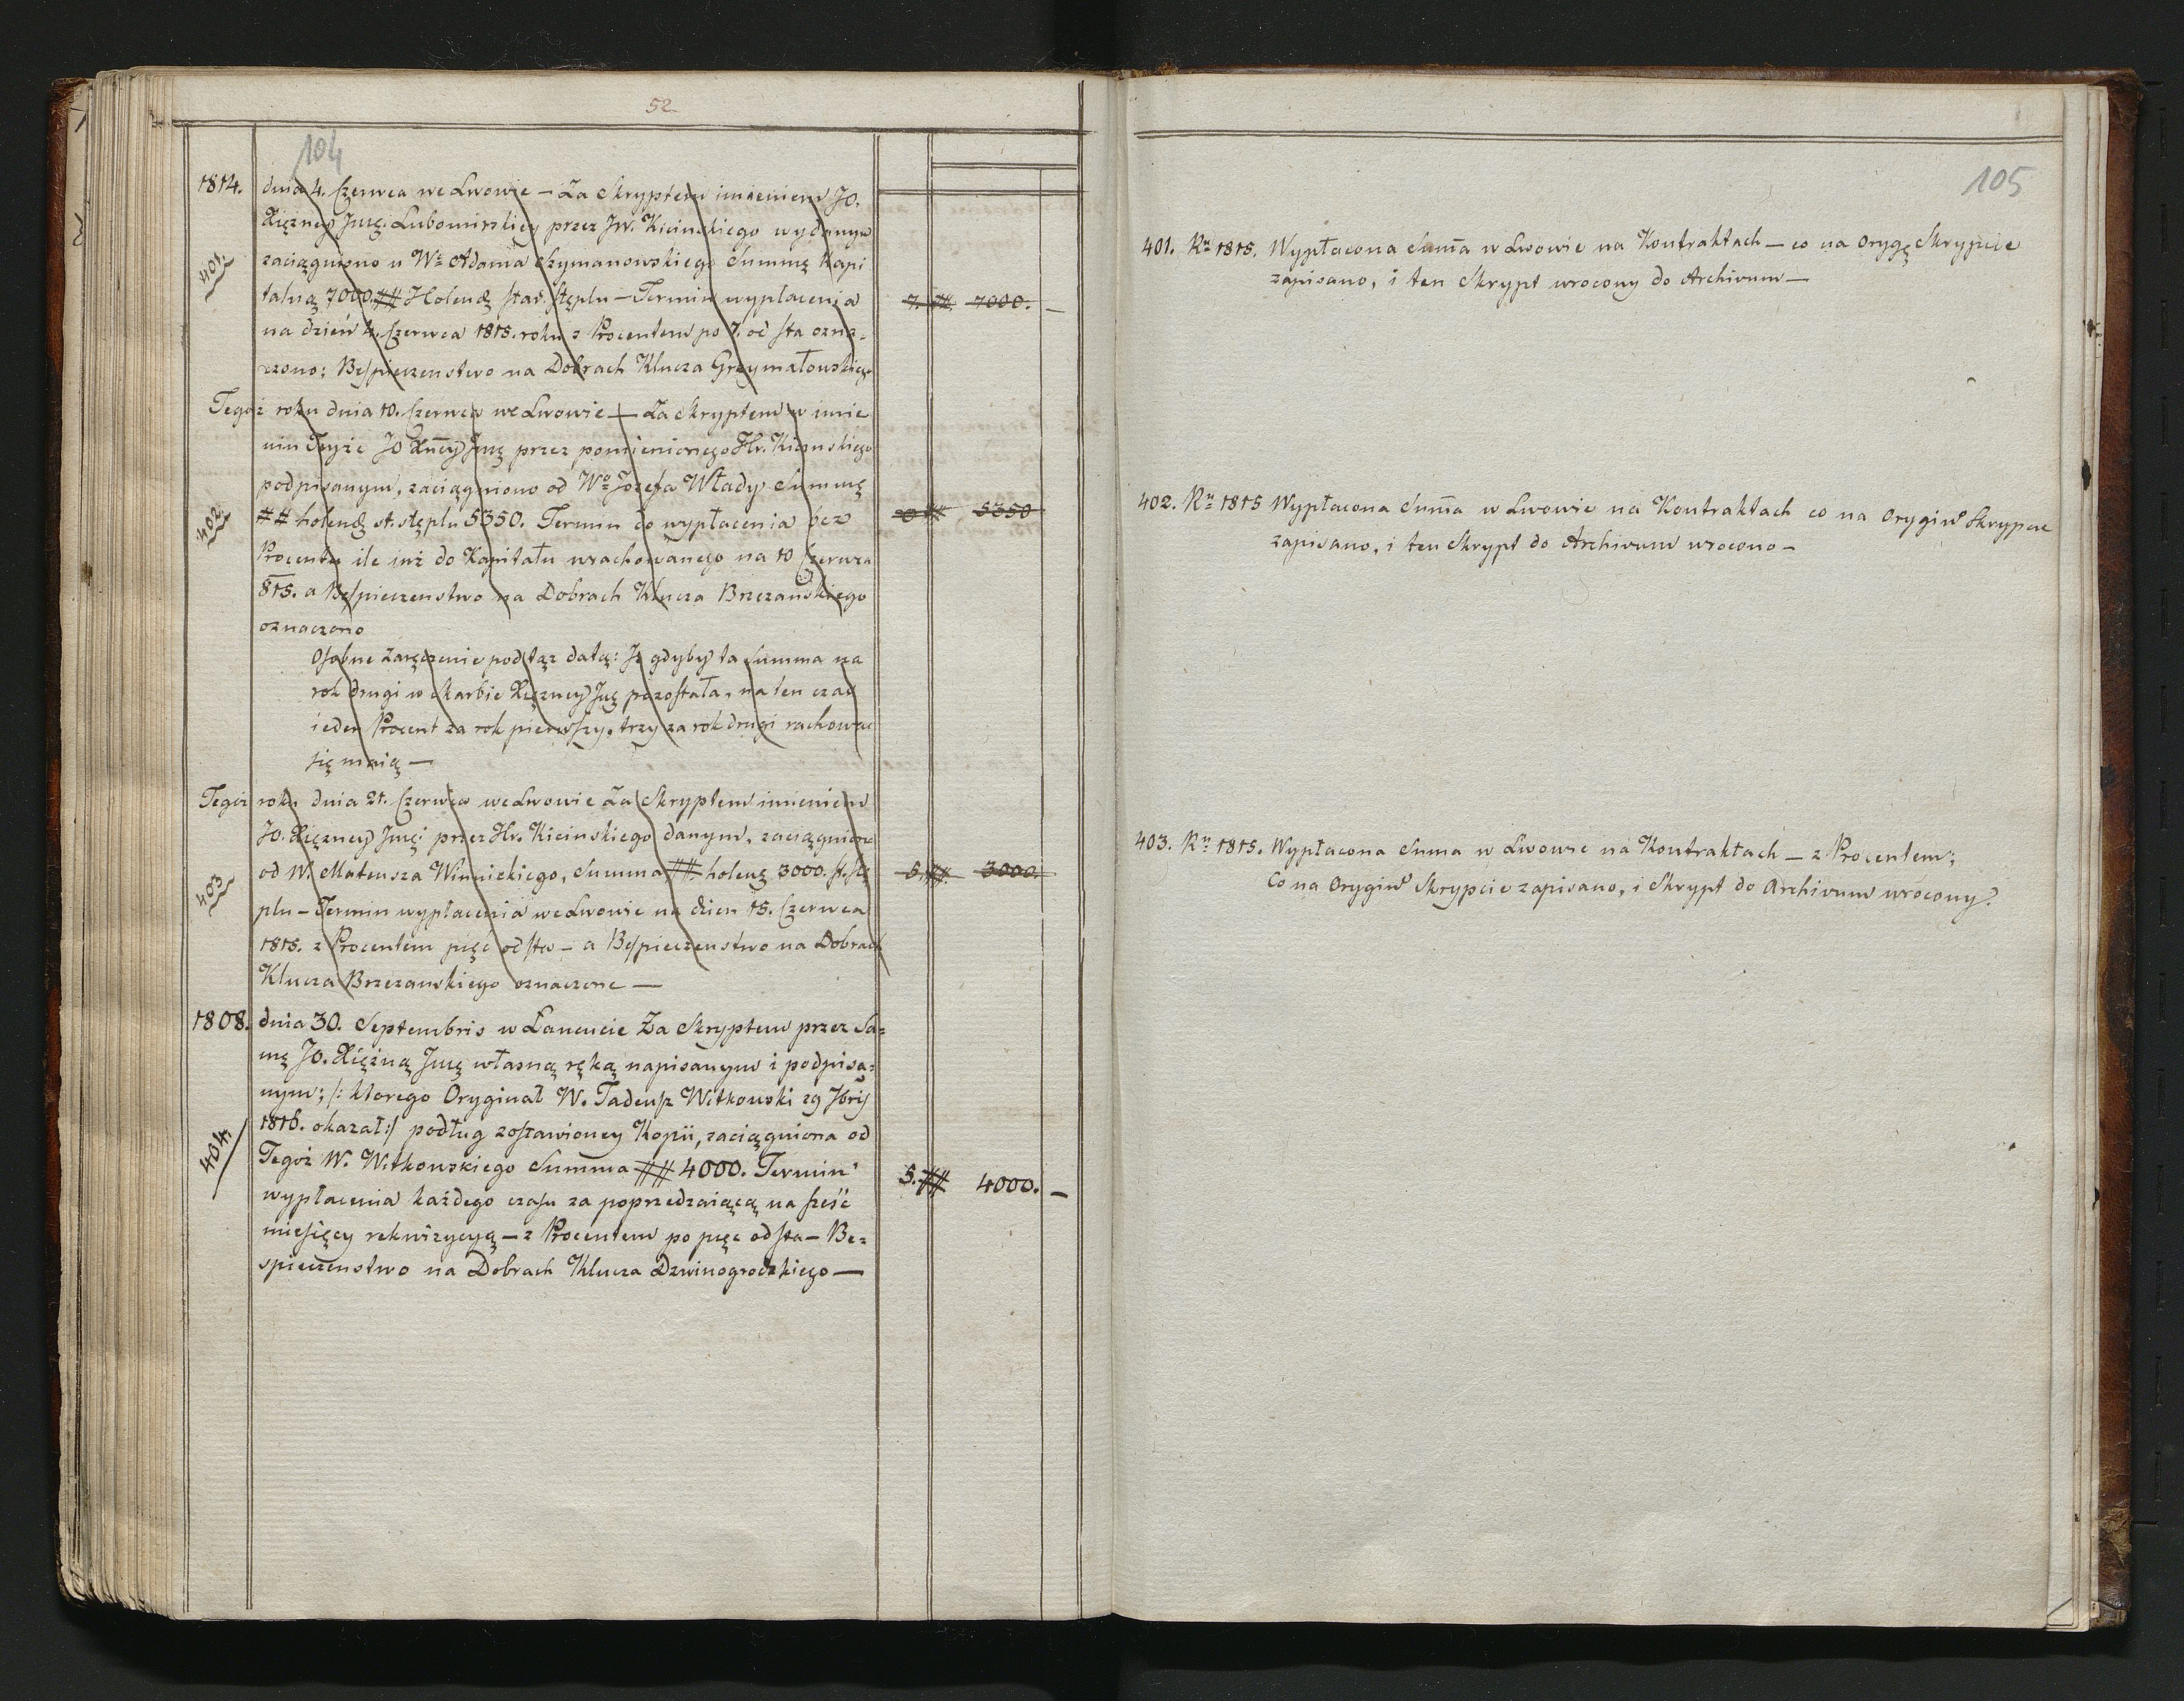 52
104
1814. dnia 4. Czerwca we Lwowie – Za Skryptem imieniem JO.
Xiężney Jmci Lubomirskiey przez JW. Kicinskiego wydanym
zaciągniono u Wo Adama Szymanowskiego Summę Kapi
401.
talną 7000 ## Holend. star. stęplu – Termin wypłacenia
7. ## 7000. –
na dzień 4. Czerwca 1815. roku z Procentem po 7. od sta ozna-
czono; Bespieczenstwo na Dobrach Klucza Grzymałowskiego
Tegoż roku dnia 10. Czerwca we Lwowie – Za Skryptem w imie
niu Teyże JO Xney Jmę przez pomienionego Hr. Kicinskiego
podpisanym, zaciągniono od Wo Jozefa Włady Summę
402.
## holend. st. stęplu 5350. Termin do wypłacenia bez
0 ## 5350
Procentu ile iuż do Kapitału wrachowanego na 10 Czerwca
815. a Bespieczenstwo na Dobrach Klucza Brzezanskiego
oznaczono
Osobne Zaręczenie pod tąż datą: Iż gdyby ta Summa na
rok drugi w Skarbie Xiężney Jmę pozostała, na ten czas
ieden Procent za rok pierwszy, trzy za rok drugi rachować
się maią —
Tegoż roku dnia 21. Czerwca we Lwowie Za Skryptem imieniem
JO. Xiężney Jmci przez Hr. Kicinskiego danym, zaciągniono
403
od W. Mateusza Winnickiego, Summa ## holend. 3000. st. stę
5. ## 3000.
plu – Termin wypłacenia we Lwowie na dzien 15. Czerwca
1815. z Procentem pięć od sta – a Bespieczenstwo na Dobrach
Klucza Brzezanskiego oznaczone —
1808. dnia 30. Septembris w Łancucie Za Skryptem przez Sa=
mę JO. Xiężną Jmę własną ręką napisanym i podpisa=
nym; /: ktorego Oryginał W. Tadeusz Witkowski 29 7bris
404.
1816. okazał :/ podług zostawioney Kopii, zaciągniona od
Tegoż W. Witkowskiego Summa ## 4000. Termin
5. ## 4000. –
wypłacenia każdego czasu za poprzedzaiącą na sześć
miesięcy rekwizycyą – z Procentem po pięc od sta – Be=
spieczenstwo na Dobrach Klucza Dzwinogrodzkiego —
105
401. Ru 1815. Wypłacona Suma w Lwowie na Kontraktach – co na Skrypcie
zapisano, i ten Skrypt wrocony do Archivum —
402. Ru 1815 Wypłacona Suma w Lwowie na Kontraktach co na Orygin. Skrypcie
zapisano, i ten Skrypt do Archivum wrocono –
403. Ru 1815. Wypłacona Suma w Lwowie na Kontraktach – z Procentem;
Co na Orygin. Skrypcie zapisano, i Skrypt do Archivum wrocony.